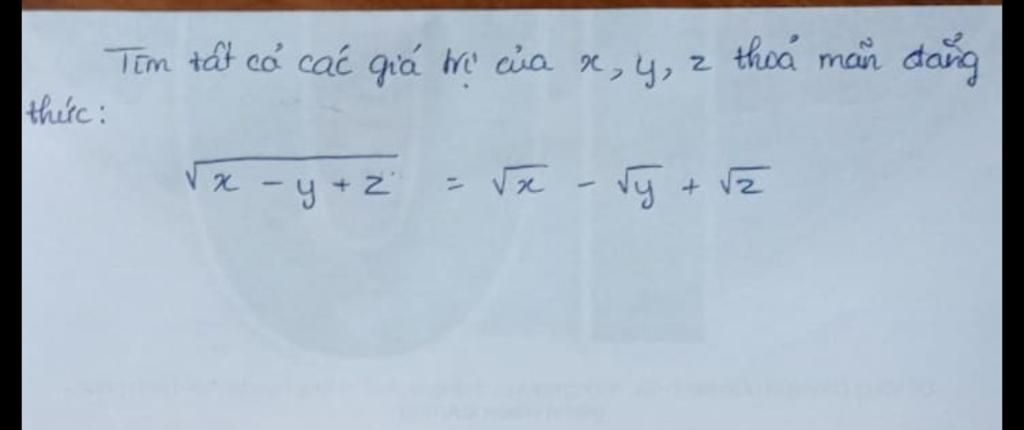 Tìm tất cả các giá trị của x, y, z thoả mãn đẳng
thức:
√(x - y + z) = √x - √y + √z